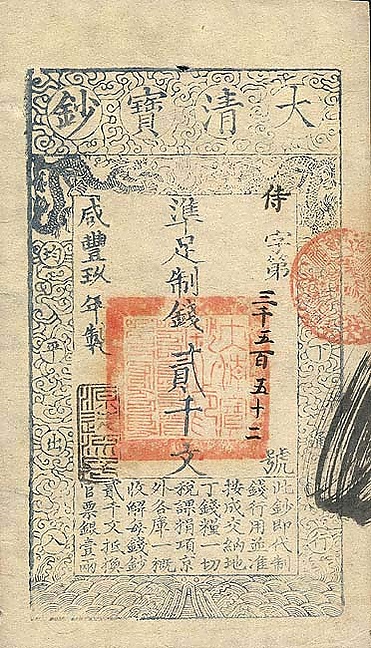 大清寶鈔
天下通行
侍字第三千五百五十二號
準足制錢貳千文
咸豐玖年製
均平出入
此鈔即代制
錢行用並准
按成交納地
丁錢糧一切
稅課捐項京
外各庫一概
收解每錢鈔
貳千文抵換
官票銀壹兩